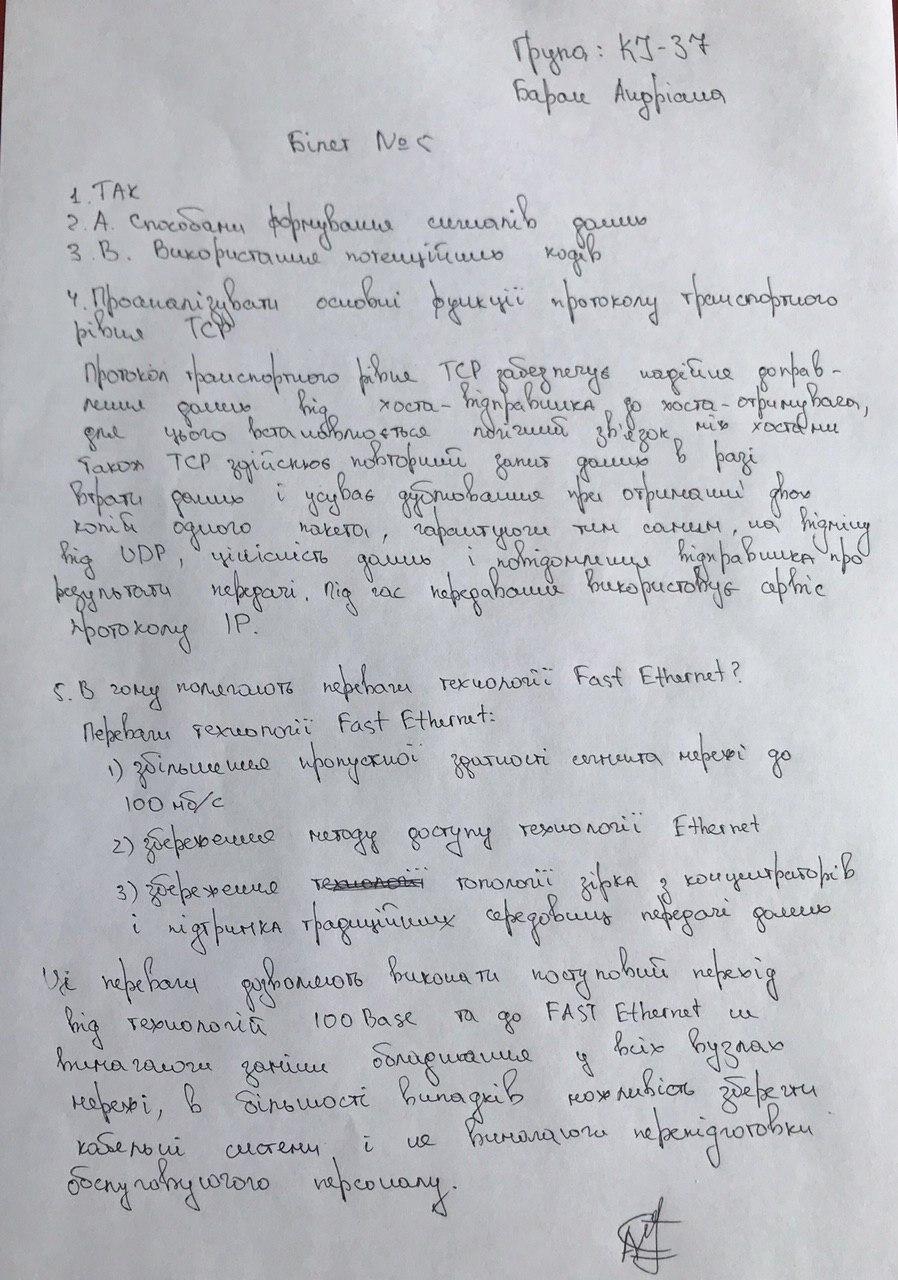 Група: КІ-37
Баран Андріана
Білет № 5
1. ТАК
2. А. Способами формування сигналів даних
3. В. Використання потенційних кодів
4. Проаналізувати основні функції протоколу транспортного
рівня TCP
Протокол транспортного рівня TCP забезпечує надійне доправ-
лення даних від хоста-відправника до хоста-отримувача,
для цього встановлюється логічний зв'язок між хостами
Також TCP здійснює повторний запит даних в разі
втрати даних і усуває дублювання при отриманні двох
копій одного пакета, гарантуючи тим самим, на відміну
від UDP, цілісність даних і повідомлення відправника про
результати передачі. Під час передавання використовує сервіс
протоколу IP.
5. В чому полягають переваги технології Fast Ethernet?
Переваги технології Fast Ethernet:
1) збільшення пропускної здатності сегмента мережі до
100 мб/с
2) збереження методу доступу технології Ethernet
3) збереження технології топології зірка з концентраторів
і підтримка традиційних середовищ передачі даних
Ці переваги дозволяють виконати поступовий перехід
від технологій 100 Base та до FAST Ethernet не
вимагаючи заміни обладнання у всіх вузлах
мережі, в більшості випадків можливість зберегти
кабельні системи і не перепідготовки
обслуговуючого персоналу.